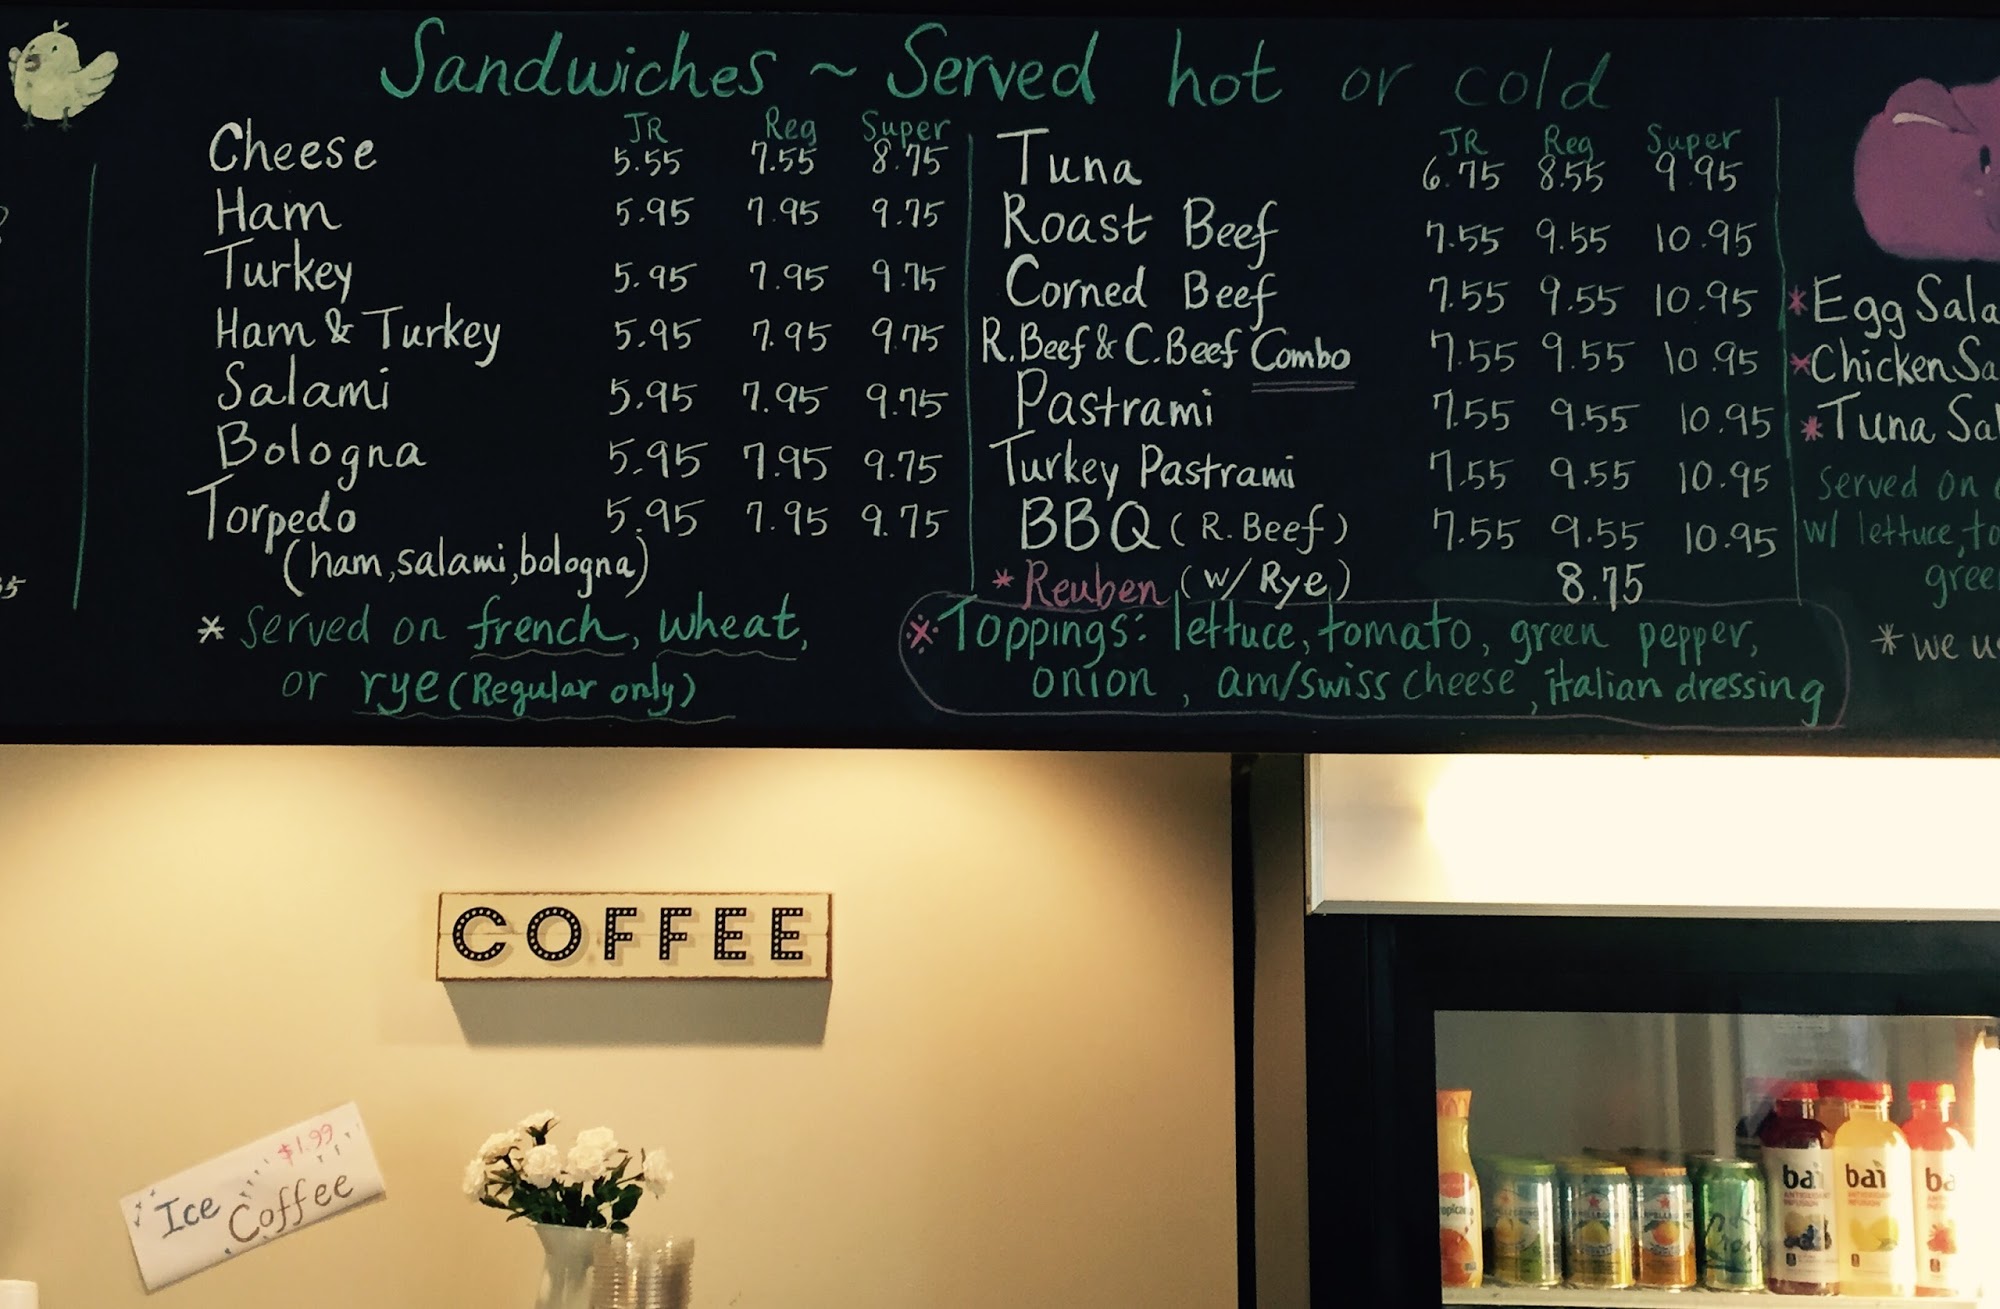 Sandwiches ~ Served hot or cold
JR Reg Super
Cheese 5.55 7.55 8.75
Ham 5.95 7.95 9.75
Turkey 5.95 7.95 9.75
Ham & Turkey 5.95 7.95 9.75
Salami 5.95 7.95 9.75
Bologna 5.95 7.95 9.75
Torpedo 5.95 7.95 9.75
(ham, salami, bologna)
* Served on french, wheat,
or rye (Regular only)
JR Reg Super
Tuna 6.75 8.55 9.95
Roast Beef 7.55 9.55 10.95
Corned Beef 7.55 9.55 10.95
R. Beef & C. Beef Combo 7.55 9.55 10.95
Pastrami 7.55 9.55 10.95
Turkey Pastrami 7.55 9.55 10.95
BBQ (R. Beef) 7.55 9.55 10.95
* Reuben (w/ Rye) 8.75
※ Toppings: lettuce, tomato, green pepper,
onion, am/swiss cheese, italian dressing
* Egg Sala
* Chicken Sa
* Tuna Sal
Served on
w/ lettuce, to
gree
* we u
COFFEE
$1.99
Ice Coffee
bai
bai
ba